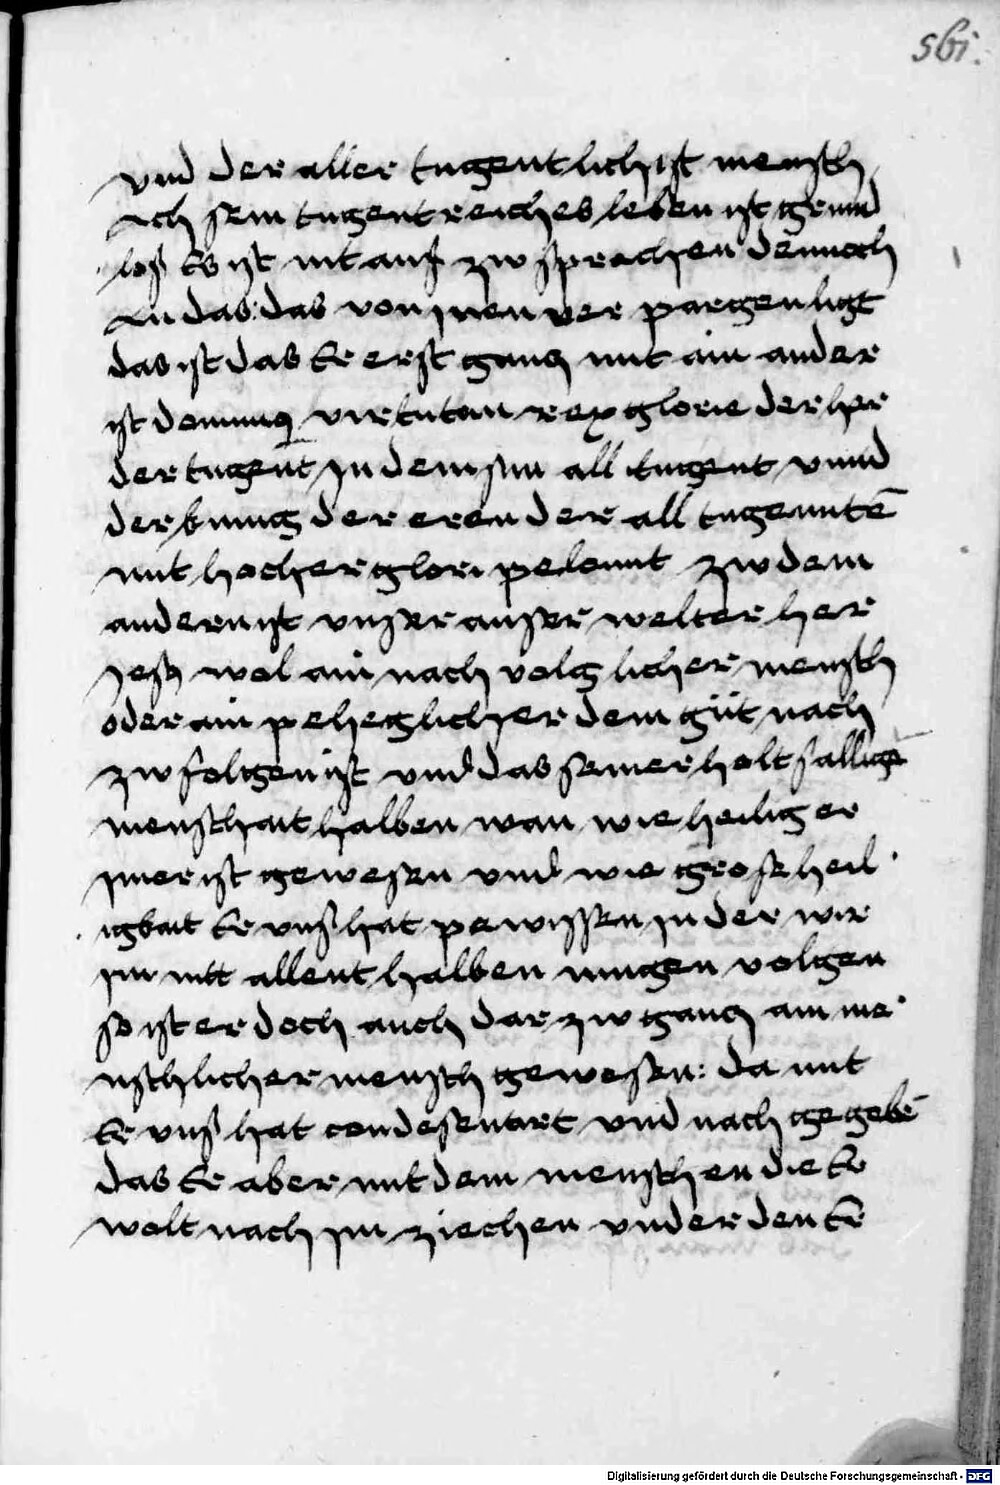 561.
vnd der aller tugentlichist mensch
Ach sein tugentreiches leben ist grund
loß Es ist nit auß zw sprechen dennoch
An das: das von Inen ver pargen ligt
das ist das Er erst gancz mit ain ander
ist dominus virtutum rex glorie der her
der tugent In dem sein all tugent vnnd
der kunig der eren der all tugennten̄
mit hocher glori pelonnt zw dem
andern ist vnser auserwelter her
Jesus wol ain nach volglicher mensch
oder ain peheglicher dem güt nach
zw folgen ist vnd das seiner holtsallige͂
menschait halben wan wie heilig er
Imer ist gewesen vnd wie grose heil
igkait Er vns hat pewissen In der wir
Im nitt allent halben mugen volgen
so ist er doch auch dar zw gancz ain me
nschlicher mensch gewesen: da mit
Er vns hat condesentirt vnd nach gegebē
das Er aber mit dem menschen die Er
wolt nach Im ziechen vnder den Er
Digitalisierung gefördert durch die Deutsche Forschungsgemeinschaft - DFG